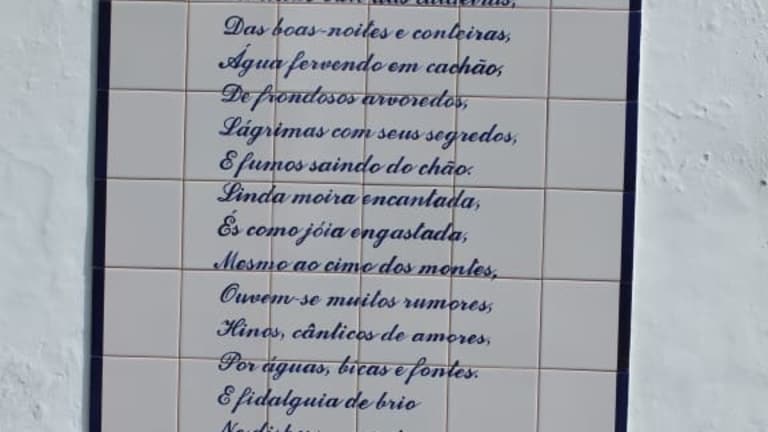 das caldeiras,
Das boas-noites e conteiras,
Água fervendo em cachão,
De frondosos arvoredos,
Lágrimas com seus segredos,
E fumos saindo do chão.
Linda moira encantada,
És como jóia engastada,
Mesmo ao cimo dos montes,
Ouvem-se muitos rumores,
Hinos, cânticos de amores,
Por águas, bicas e fontes.
E fidalguia de brio